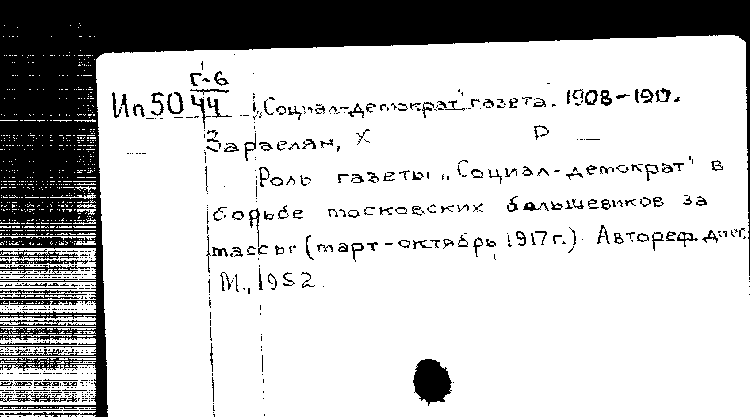 Г-6
Ип 50 44 „Социал-демократ" газета. 1908-1917.
Зараелян, Х
Роль газеты „Социал-демократ" в
борьбе московских большевиков за
массы (март-октябрь 1917 г.) Автореф. дисс.
М., 1952.